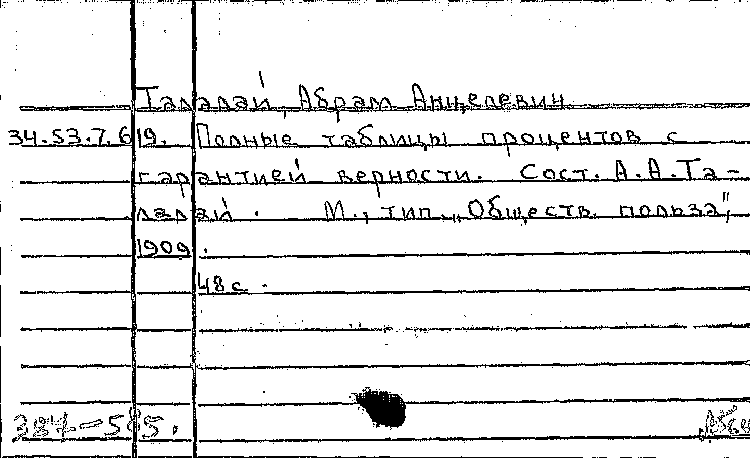 Талалай, Абрам Анцелевич
34.53.7.619. Полные таблицы процентов с
гарантией верности. Сост. А.А.Та-
лалай. М., тип. „Обществ. польза",
1909.
48 с.
387-585.